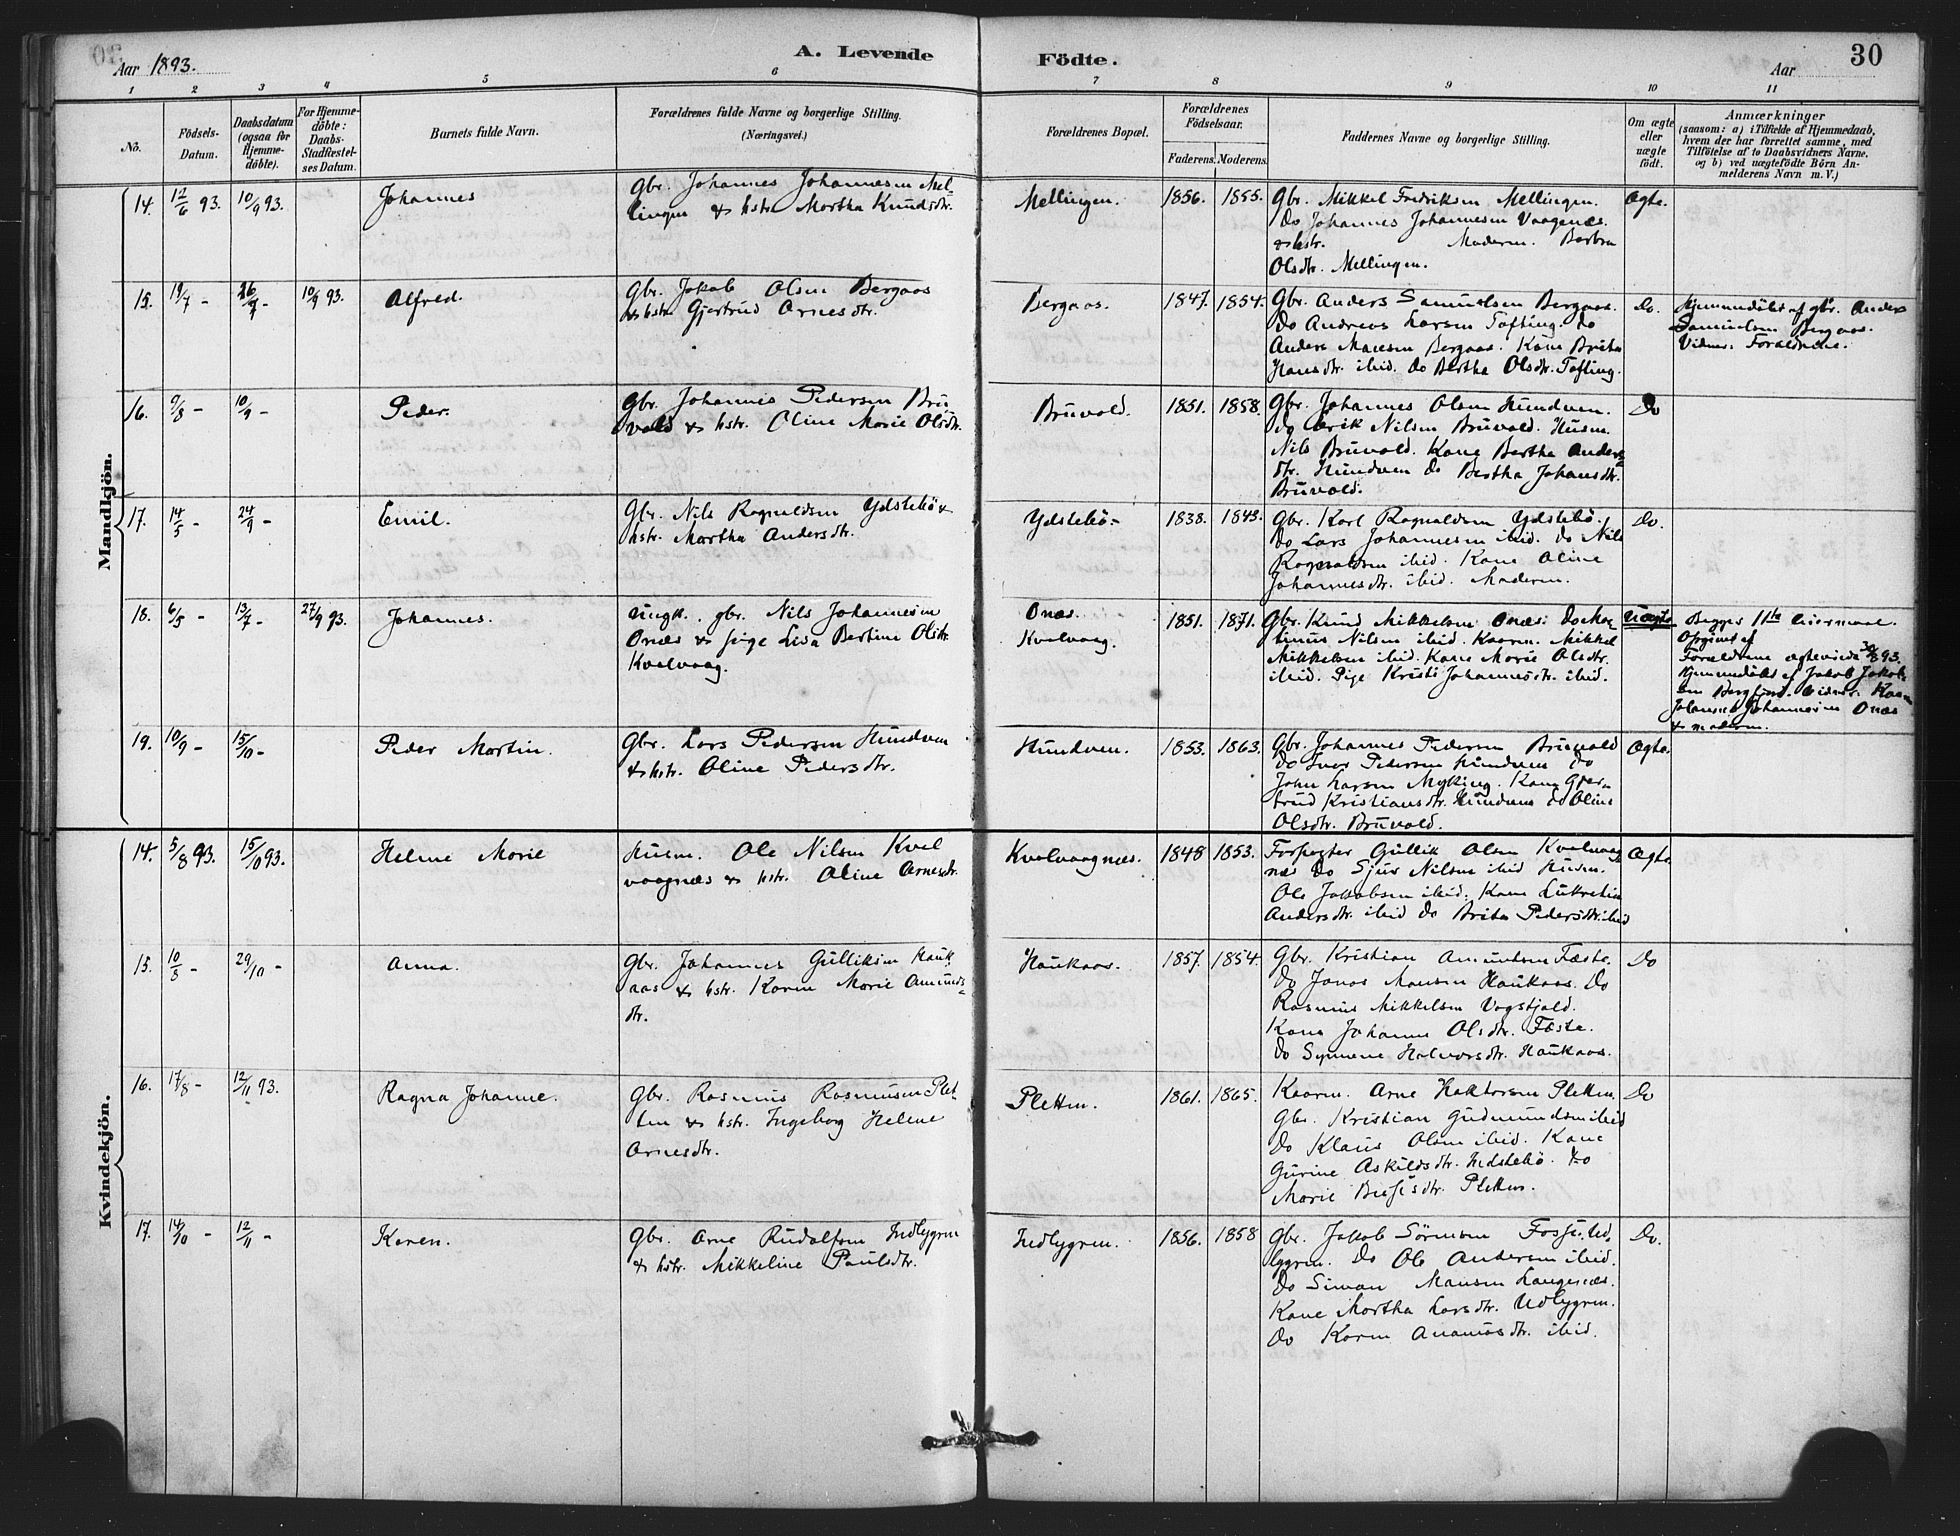 Aar 1893.
A. Levende Födte.
30
Aar
1 2 3 4 5 6 7 8 9 10 11
No.
Födsels-Datum.
Daabsdatum (ogsaa for Hjemme-döbte).
For Hjemme-döbte: Daabs-Stadfæstel-ses Datum.
Barnets fulde Navn.
Forældrenes fulde Navne og borgerlige Stilling. (Næringsvei.)
Forældrenes Bopæl.
Forældrenes Födselsaar.
Faderens. Moderens.
Faddernes Navne og borgerlige Stilling.
Om ægte eller uægte födt.
Anmærkninger
(saasom: a) i Tilfælde af Hjemmedaab,
hvem der har forrettet samme, med
Tilföielse af to Daabsvidners Navne,
og b) ved uægtefödte Börn An-
melderens Navn m. V.)
Mandkjön.
14. 12/6 93. 10/9 93. Johannes
Gbr. Johannes Johannesen Mel-
lingen & hstr. Martha Knudsdtr.
Mellingen. 1856. 1855.
Gbr. Mikkel Fredriksen Mellingen.
Do Johannes Johannesen Vaagenæs.
& hstr. Moderen. Barbra
Olsdtr. Mellingen.
Ægte.
15. 19/7 - 26/7 10/9 93. Alfred.
Gbr. Jakob Olsen Bergaas
& hstr. Gjertrud Arnesdtr.
Bergaas. 1847. 1854.
Gbr. Anders Samuelsen Bergaas.
Do Andreas Larsen Tofting. Do
Anders Mansen Bergaas. Kone Brita
Hansdtr. ibid. Do Bertha Olsdtr. Tofting.
Do.
Hjemmedöbt af gbr. Anders
Samuelsen Bergaas.
Vidner: Forældrene.
16. 9/8 - 10/9 - Peder.
Gbr. Johannes Pedersen Bru-
vold & hstr. Oline Marie Olsdtr.
Bruvold. 1851. 1858.
Gbr. Johannes Olsen Hundven.
Do Erik Nilsen Bruvold. Husm.
Nils Bruvold. Kone Bertha Anders-
dtr. Hundven Do Bertha Johansdtr.
Bruvold.
Do
17. 14/5 - 24/9 - Emil.
Gbr. Nils Ragnaldsen Ydstebö &
hstr. Martha Andersdtr.
Ydstebö - 1838. 1843.
Gbr. Karl Ragnaldsen Ydstebö.
Do Lars Johannesen ibid. Do Nils
Ragnaldsen ibid. Kone Oline
Johannesdtr. ibid. Moderen.
Do.
18. 6/5 - 13/7 - 27/9 93. Johannes.
Ungk. gbr. Nils Johannesen
Onæs & pige Lisa Bertine Olsdtr.
Kvalvaag.
Onæs.
Kvalvaag. 1851. 1871.
Gbr. Knud Mikkelsen Onæs: Do Mar-
tinus Nilsen ibid. Kaarm. Mikkel
Mikkelsen ibid. Kone Marie Olsdtr.
ibid. Pige Kristi Johannesdtr. ibid.
Uægte
Begges 11te leiermaal.
Opgivet af
Forældrene ægteviede 30/8 93.
Hjemmedöbt af Jakob Jakob-
sen Bergfjord. Vidner: Kaarm.
Johannes Johannesen Onæs
& moderen.
19. 10/9 - 15/10 - Peder Martin.
Gbr. Lars Pedersen Hundven
& hstr. Oline Pedersdtr.
Hundven. 1853. 1863.
Gbr. Johannes Pedersen Bruvold
Do Iver Pedersen Hundven Do
John Larsen Myking. Kone Gjer-
trud Kristiansdtr. Hundven Do Oline
Olsdtr. Bruvold.
Ægte.
Kvindekjön.
14. 5/8 93. 15/10 93. Helene Marie
Husm. Ole Nilsen Kval
vaagnæs & hstr. Oline Arnesdtr.
Kvalvaagnæs. 1848 1853.
Forpagter Gullik Olsen Kvalvaag
næs Do Sjur Nilsen ibid Husm.
Ole Jakobsen ibid. Kone Lukretia
Andersdtr. ibid Do Brita Pedersdtr. ibid
Ægte
15. 10/5 - 29/10 - Anna.
Gbr. Johannes Gulliksen Hauk
aas & hstr. Karen Marie Amunds-
dtr.
Haukaas. 1857. 1854.
Gbr. Kristian Amundsen Fæste.
Do Jonas Mansen Haukaas. Do
Rasmus Mikkelsen Vagstjold.
Kone Johanne Olsdtr. Fæste.
Do Synneve Halvorsdtr. Haukaas.
Do
16. 17/8 - 12/11 93. Ragna Johanne.
Gbr. Rasmus Rasmussen Plet-
ten & hstr. Ingeborg Helene
Arnesdtr.
Pletten. 1861. 1865.
Kaarm. Arne Haktorsen Pletten.
Gbr. Kristian Gudmundsen ibid
Do Klaus Olsen ibid. Kone
Gurine Askildsdtr. Indstebö. Do
Marie Børgesdtr. Pletten.
Do
17. 14/10 - 12/11 - Karen.
Gbr. Arne Rudolfsen Indlygren
& hstr. Mikkeline Paulsdtr.
Indlygren. 1856. 1858
Gbr. Jakob Sörensen Fosse. Ud-
lygren. Do Ole Andersen ibid.
Do Simon Mansen Langenæs.
Kone Martha Larsdtr. Udlygren.
Do Karen Ananiasdtr. ibid.
Do.